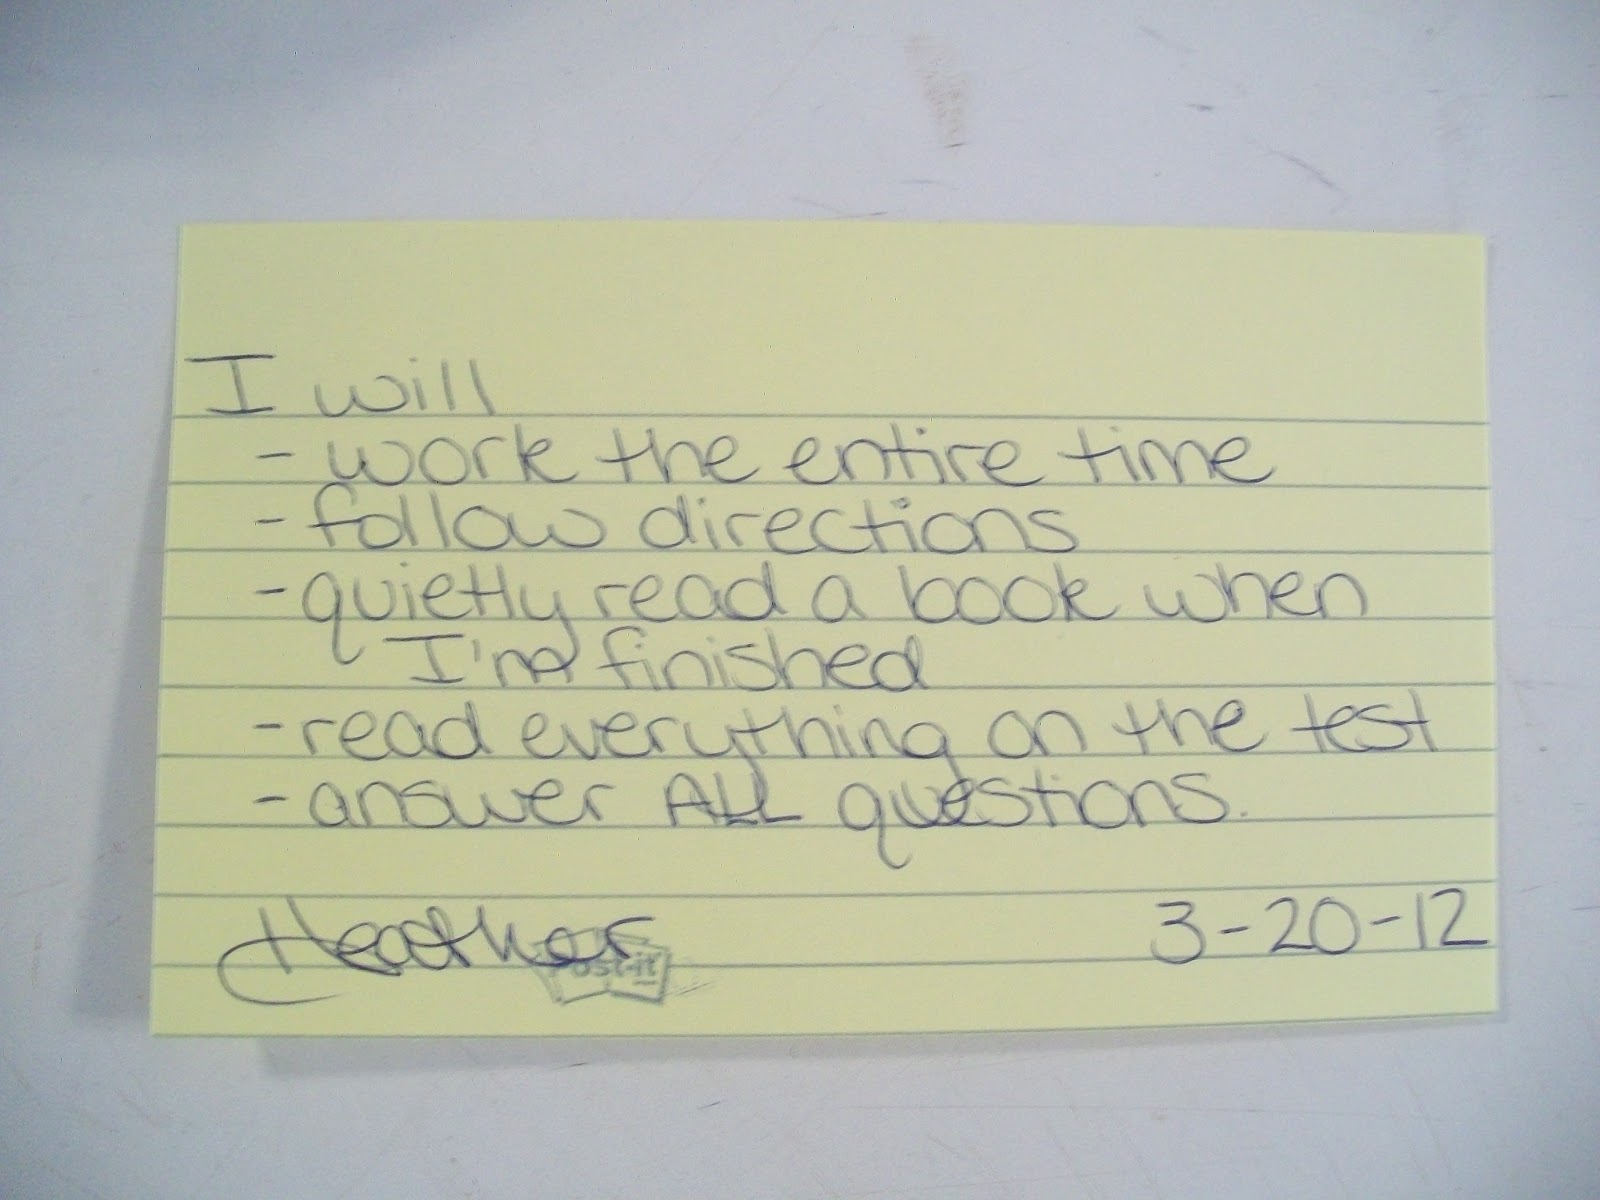 I will
- work the entire time
- follow directions
- quietly read a book when
I'm finished
- read everything on the test
- answer ALL questions.
Heather
3-20-12
Post-it